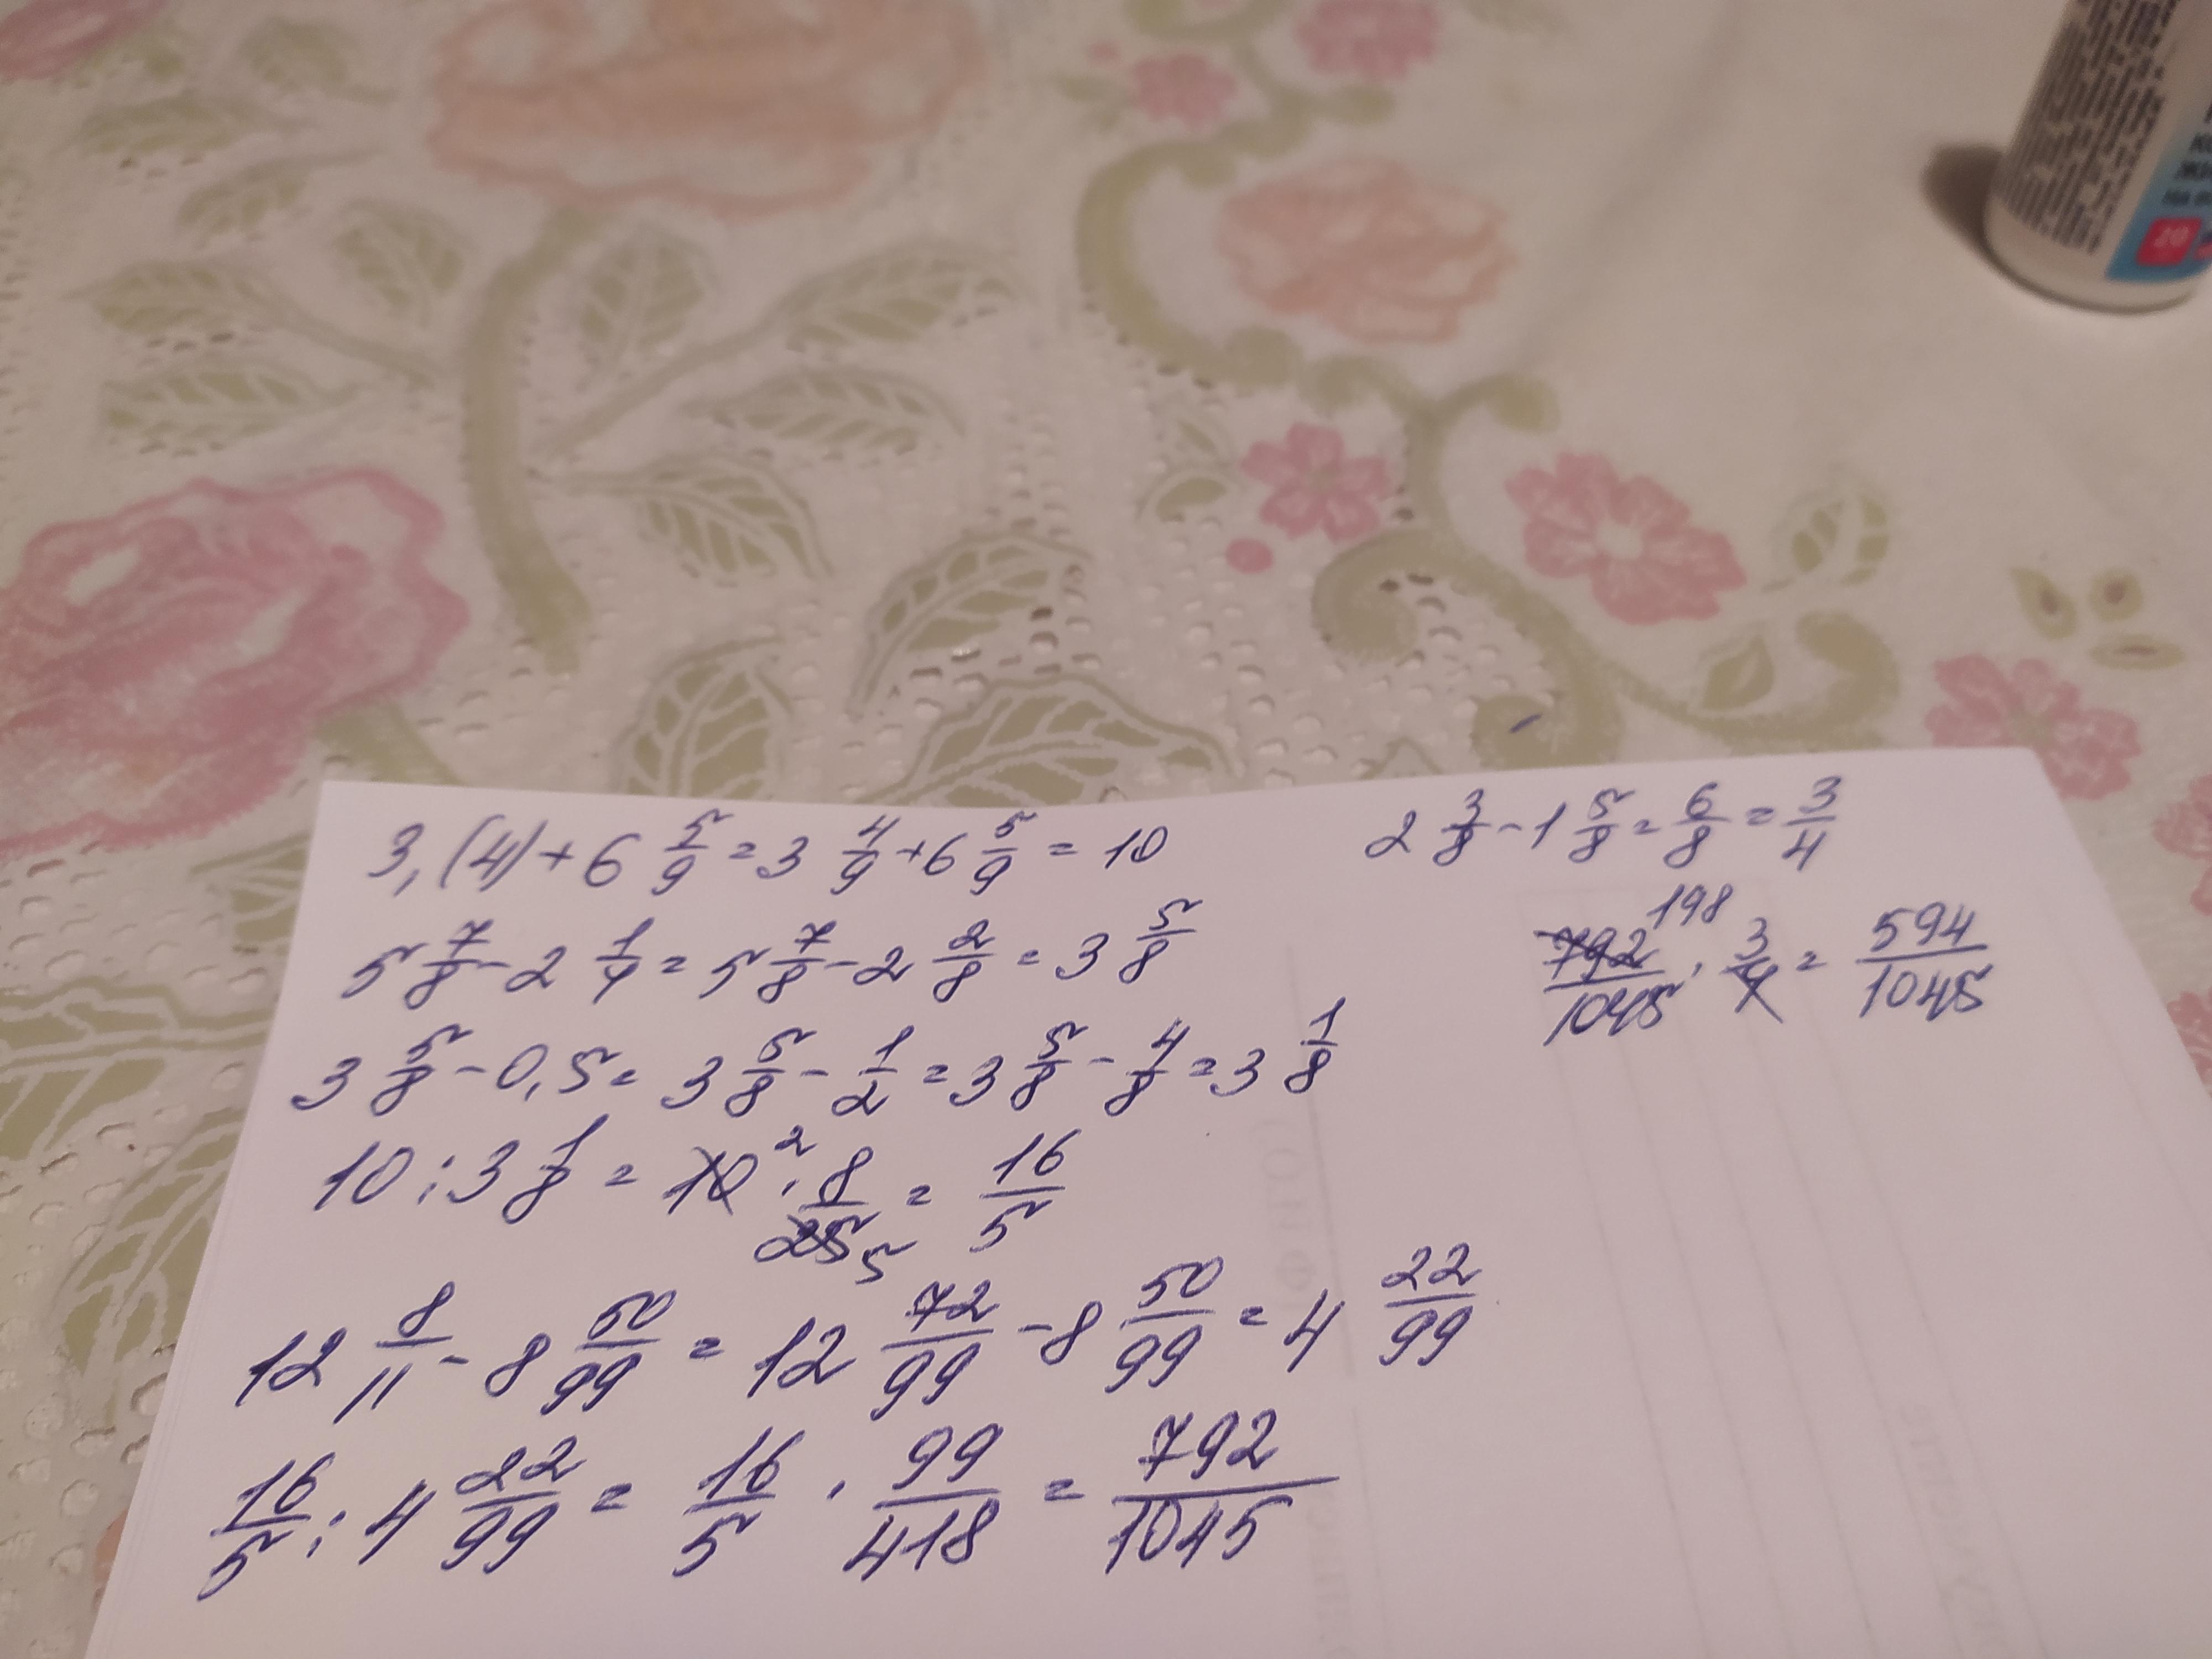 3,(4)+6 5/9=3 4/9+6 5/9=10
5 7/8-2 1/4=5 7/8-2 2/8=3 5/8
3 5/8-0,5=3 5/8-1/2=3 5/8-4/8=3 1/8
10:3 1/8=10 2·8/25 5=16/5
12 8/11-8 50/99=12 72/99-8 50/99=4 22/99
16/5:4 22/99=16/5·99/418=792/1045
2 3/8-1 5/8=6/8=3/4
792 198/1045·3/4=594/1045
20